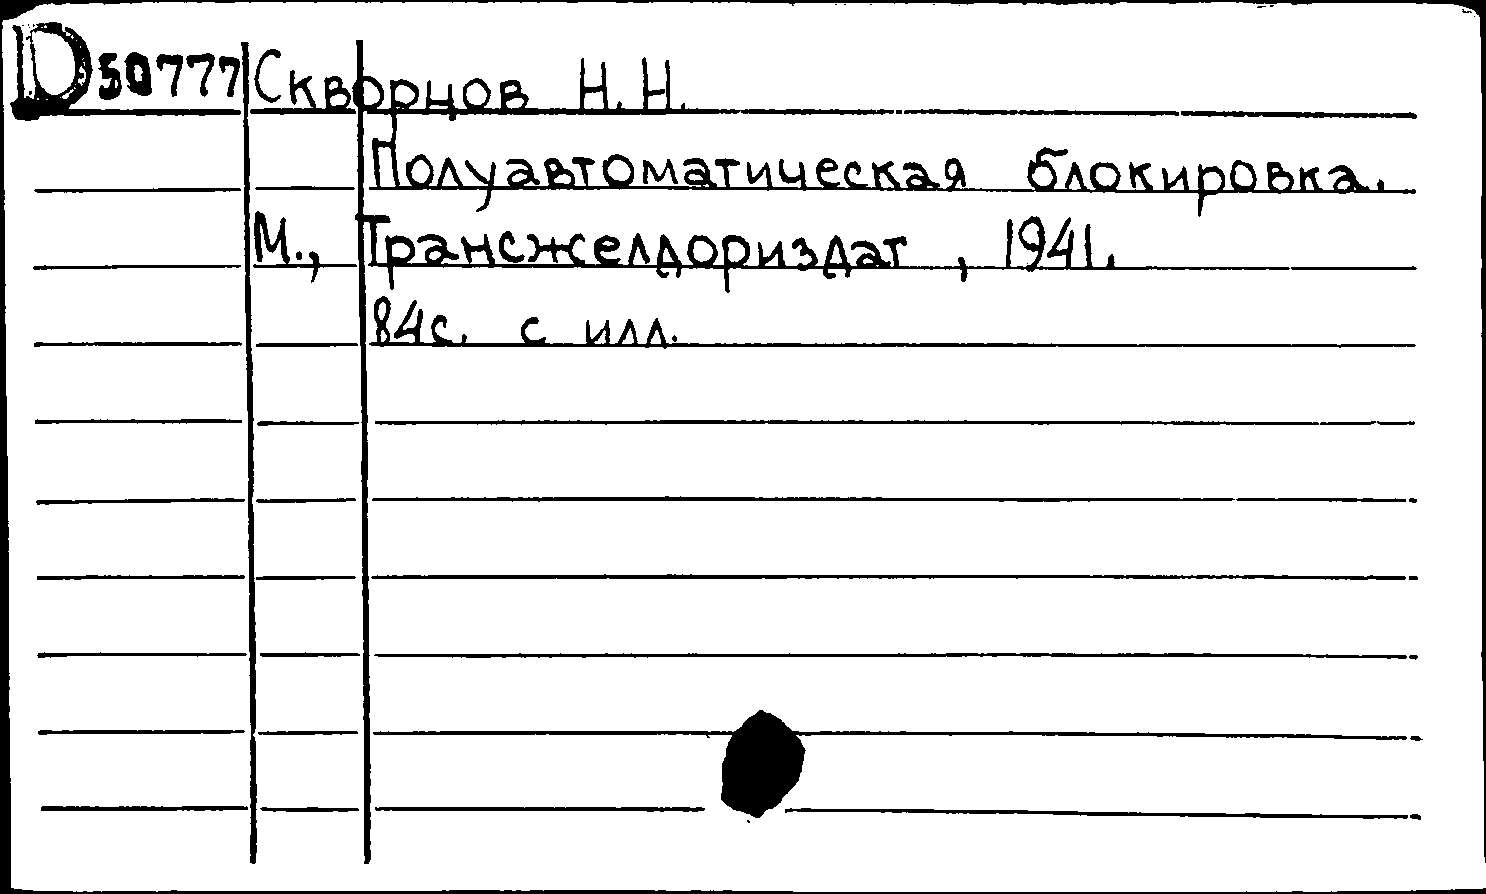 D50777 Скворцов Н.Н.
Полуавтоматическая блокировка.
М., Трансжелдориздат, 1941.
84с. с илл.